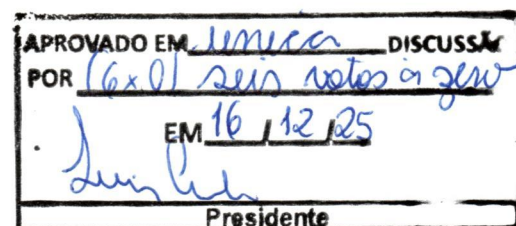 APROVADO EM única DISCUSSÃ
POR (6x0) seis votos a zero
EM 16 / 12 / 25
Presidente